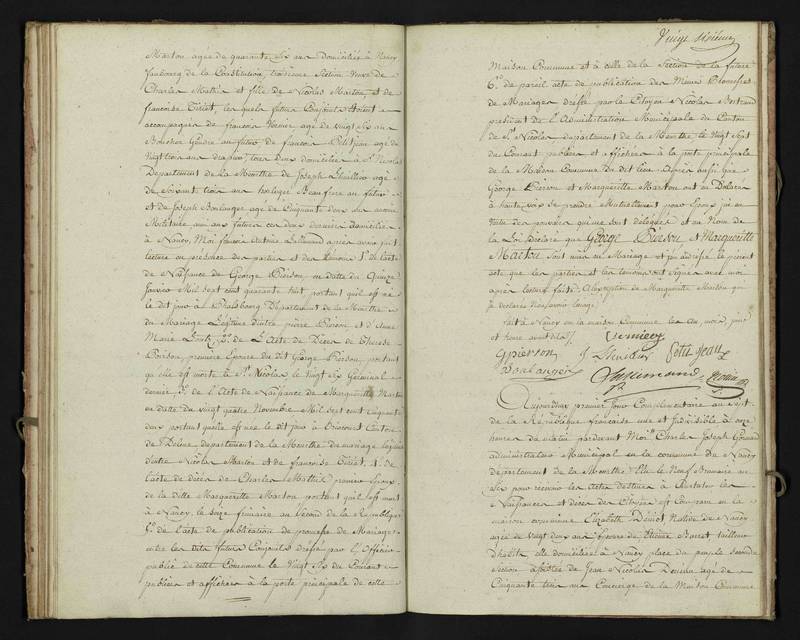 Marton agée de quarante six ans Domiciliée à Nancy
faubourg de la Constitution, troisieme Section veuve de
Charles Mathie et fille de Nicolas Marton, et de
francoise Tiriet, les quels futurs Conjoints étoient
accompagnés de francois Vernier agé de vingt six ans
Boucher Gendre au futur de francois Petitjean agé de
vingt trois ans drapier, tous deux domiciliés à St Nicolas
Departement de la Meurthe de Joseph Lhuillier agé
de soixante trois ans horloger Beaufrere au futur
et de Joseph Boulanger agé de Cinquante deux ans
amis aux futurs ces deux derniers Domiciliés
à Nancy, Moi francois Antoine Lallemand après avoir fait
lecture en présence des parties et des témoins 1° de l'acte
de Naissance de George Pierson en datte du Quinze
Janvier Mil Sept cent quarante huit portant qu'il est né
le dit jour à Phalsbourg Département de la Meurthe
du Mariage Légitime d'entre pierre Pierson et d'Anne
Marie 2° de L'Acte de Décès de Therese
Poirson, première Epouse du dit George Pierson, portant
qu'elle est morte à St Nicolas, le vingt six Germinal
dernier 3° de l'Acte de Naissance de Marguerite Marton
en datte du vingt quatre Novembre Mil Sept cent Cinquante
deux portant qu'elle est née le dit jour à Canton
de Delme département de la Meurthe du mariage légitime
d'entre Nicolas Marton et de francoise Tiriet, 4° de
l'acte de décès de Charles Mathie premier Epoux
de la dite Marguerite Marton portant qu'il est mort
à Nancy, le seize frimaire au Second de la République
5° de l'acte de publication de promesse de Mariage
entre les dits futurs Conjoints dressé par l'Officier
public de cette Commune le vingt six du Courant
publiés et affichés à la porte principale de cette
Vingt sixieme
Maison Commune et à celle de la Section de la future
6° de pareil acte de publication des Mêmes Promesses
de Mariages dressé par le Citoyen Nicolas Bertrand
président de l'Administration Municipale du Canton
de St Nicolas departement de la Meurthe le vingt sept
du Courant publiés et affichés à la porte principale
de la Maison Commune du dit lieu Après aussi que
George Pierson et Marguerite Marton ont eu Déclaré
à haute voix se prendre Mutuellement pour Epoux j'ai en
vertu des pouvoirs qui me sont délégués et au Nom de
la Loi Déclaré que George Pierson et Marguerite
Marton sont unis en Mariage et j'ai rédigé le présent
acte que les parties et les témoins ont signés avec moi
après lecture faite à l'exception de Marguerite Marton qui
a déclarée Ne savoir l'usage
fait à Nancy en la maison Commune les an, mois, jour
et heure avant dits Vernier
G pierson J Lhuillier Petit jean
Boulanger
Lallemand
Aujourd'huy premier jour Complementaire an Sept
de la République francaise une et Indivisible à onze
heures du matin pardevant Moi Charles Joseph Gérard
administrateur Municipal en la commune de Nancy
département de la Meurthe Elu le Neuf Brumaire an
Six pour recevoir les actes destinés à Constater les
Naissances et décès des Citoyens est Comparu en la
maison commune Elizabeth Dénot Native de Nancy
agée de vingt deux ans Epouse de Etienne Barret tailleur
d'habits elle domiciliée à Nancy place du peuple seconde
Section assistée de Jean Nicolas agé de
Cinquante trois ans Concierge de la Maison Commune